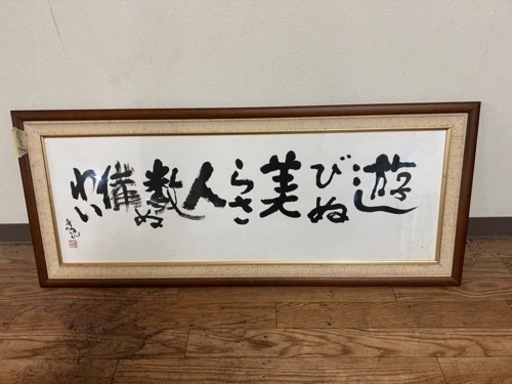 遊びぬ美らさ人数ぬ備わい